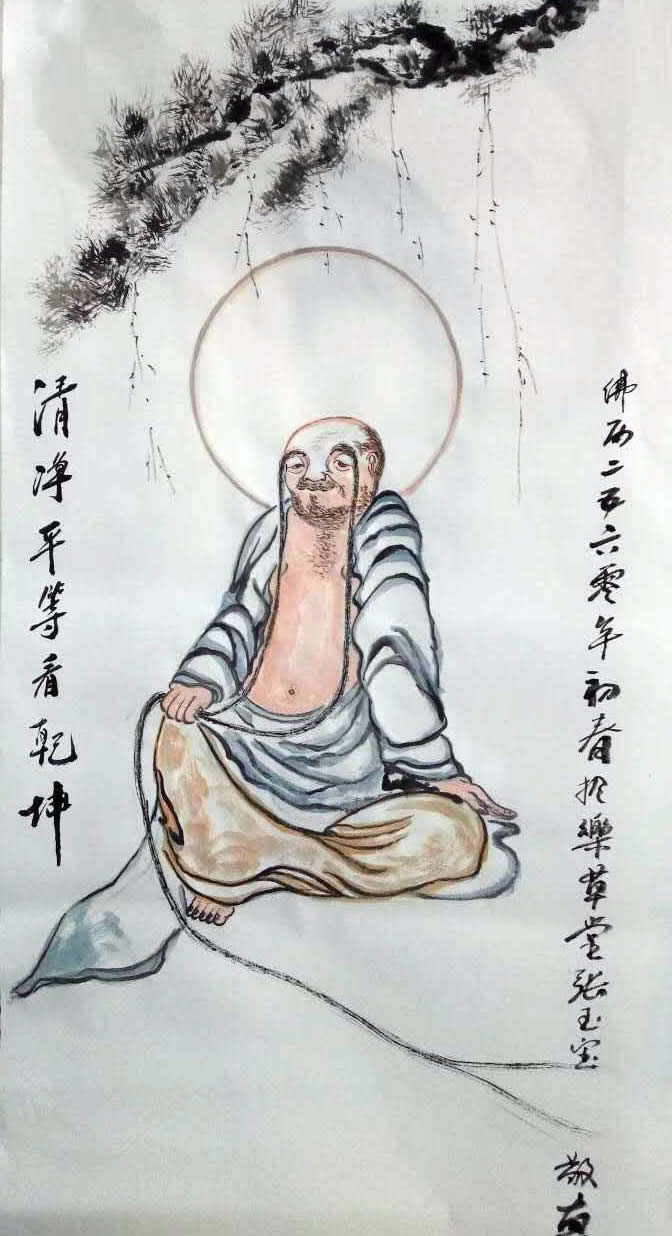 佛历二五六零年初春於樂草堂张玉宝
敬
清净平等看乾坤